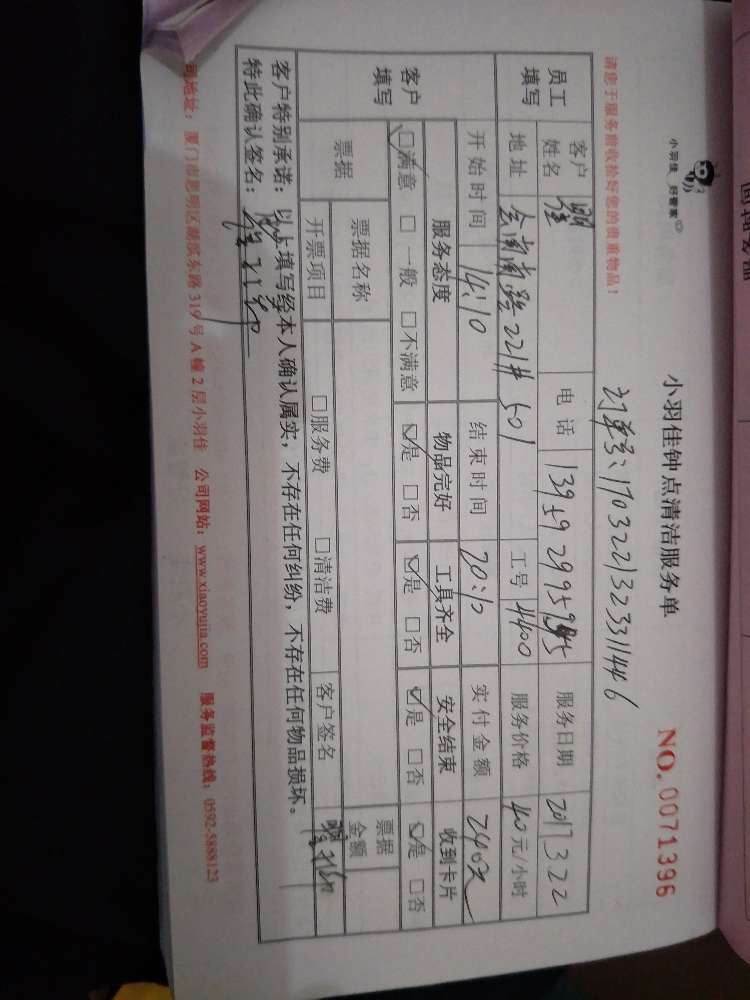 小羽佳 好管家
小羽佳钟点清洁服务单
NO. 0071396
请您于服务前收拾好您的贵重物品！
订单号：1703221323311446
员工填写
客户姓名
电话 139592995
服务日期 2017.3.22
地址 会南南路221# 501
工号 4400
服务价格 40元/小时
开始时间 14:10
结束时间 20:10
实付金额 240元
客户填写
服务态度 物品完好 工具齐全 安全结束 收到卡片
☑满意 □一般 □不满意 ☑是 □否 ☑是 □否 ☑是 □否 ☑是 □否
票据
票据名称
票据金额
开票项目 □服务费 □清洁费 客户签名
客户特别承诺：以上填写经本人确认属实，不存在任何纠纷，不存在任何物品损坏。
特此确认签名：
司地址：厦门市思明区湖滨东路319号A幢2层小羽佳 公司网站：www.xiaoyujia.com 服务监督热线：0592-5888123